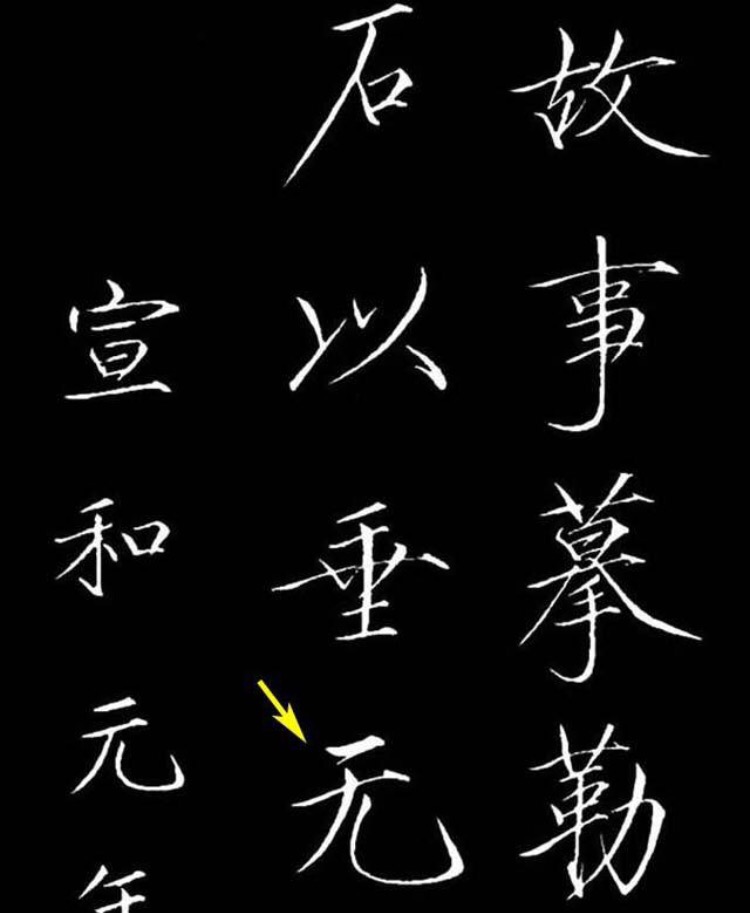 故事摹勒
石以垂无
宣和元年